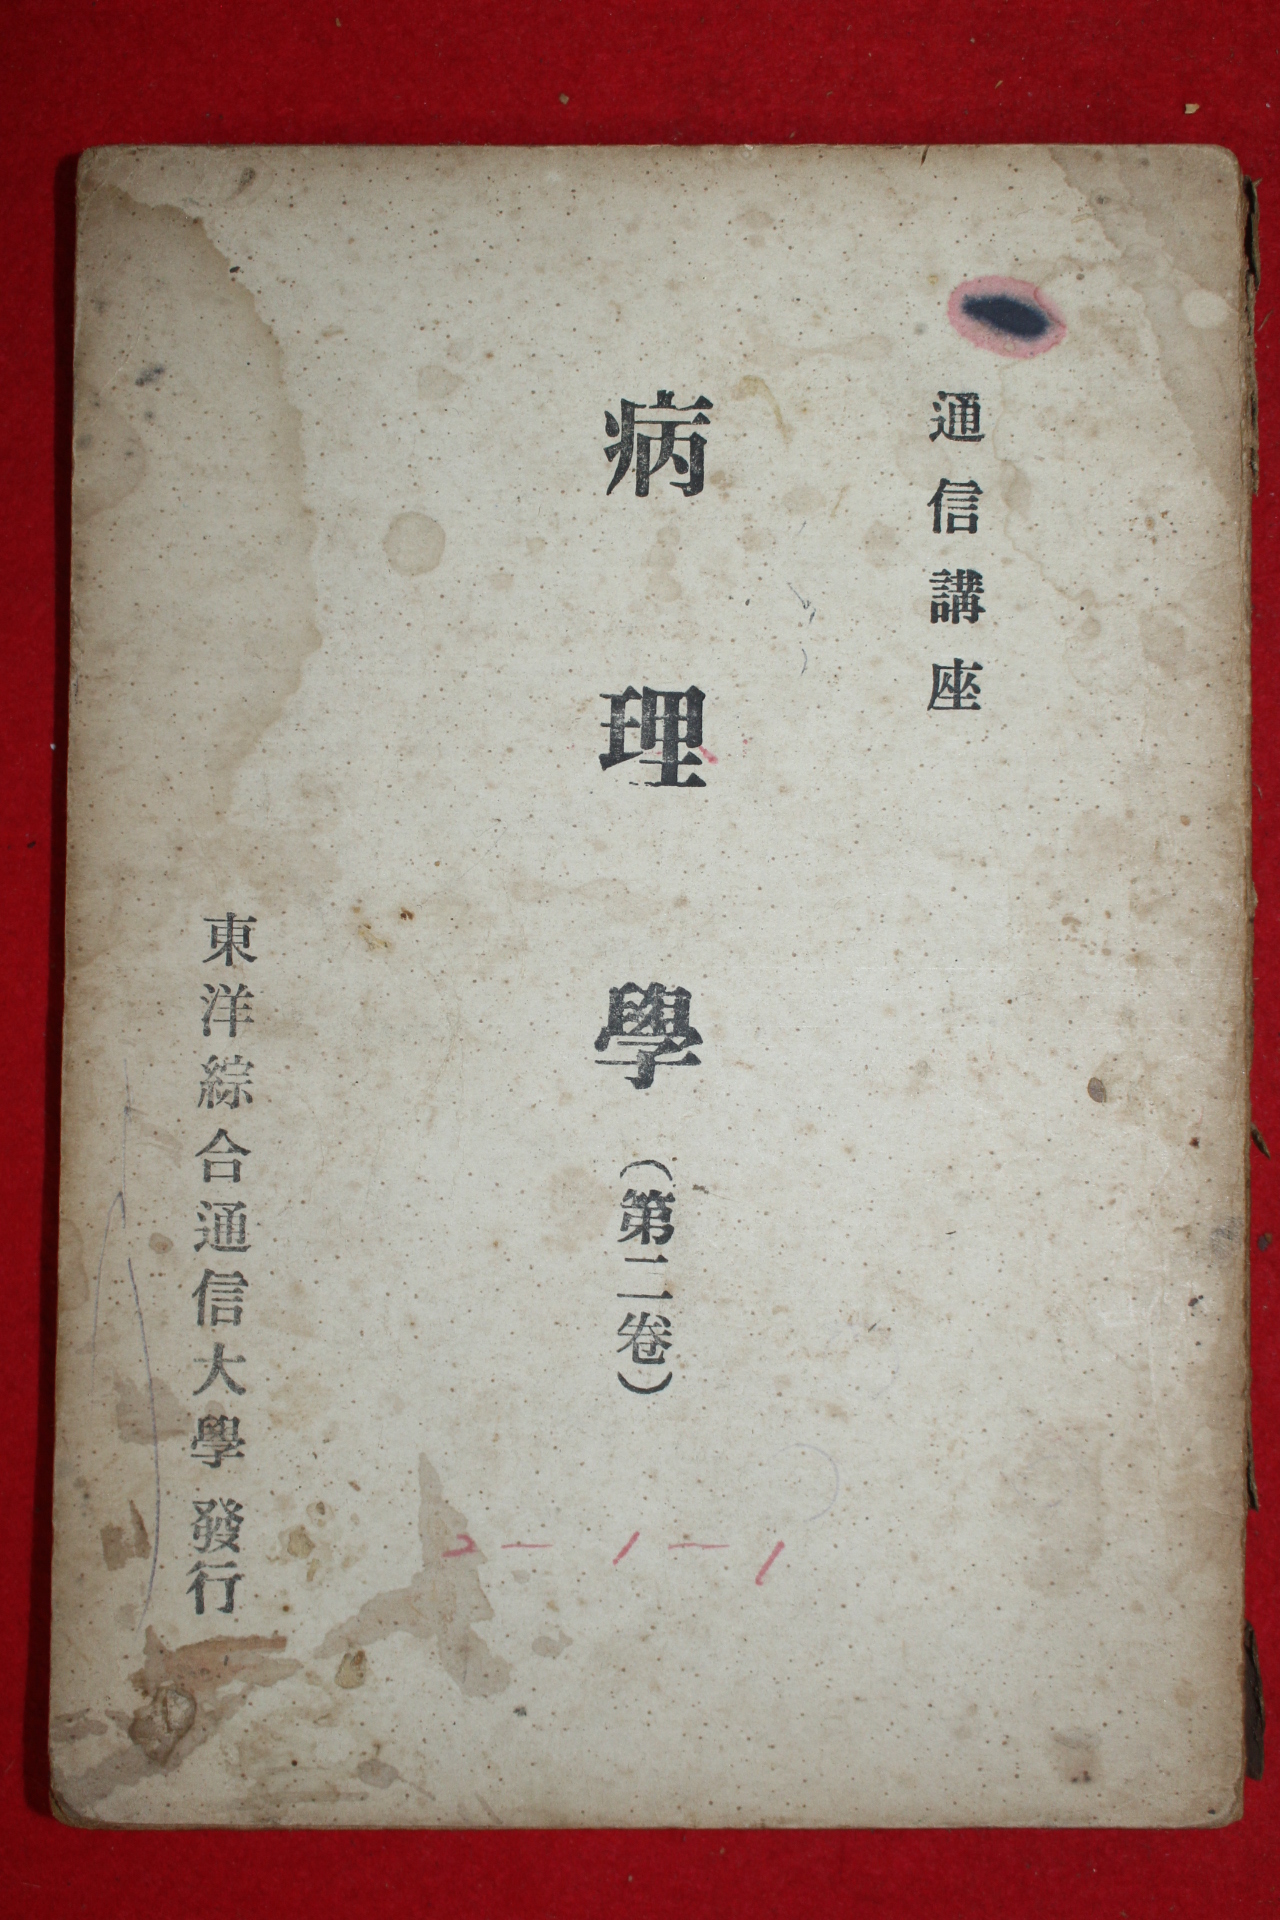 通信講座
病理學(第二卷)
東洋綜合通信大學 發行
2-1-1